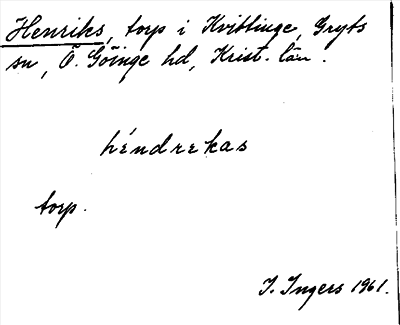 Henriks, torp i Kvittinge, Gryts
sn, Ö. Göinge hd, Krist. län.
héndrekas
torp.
I. Ingers 1961.